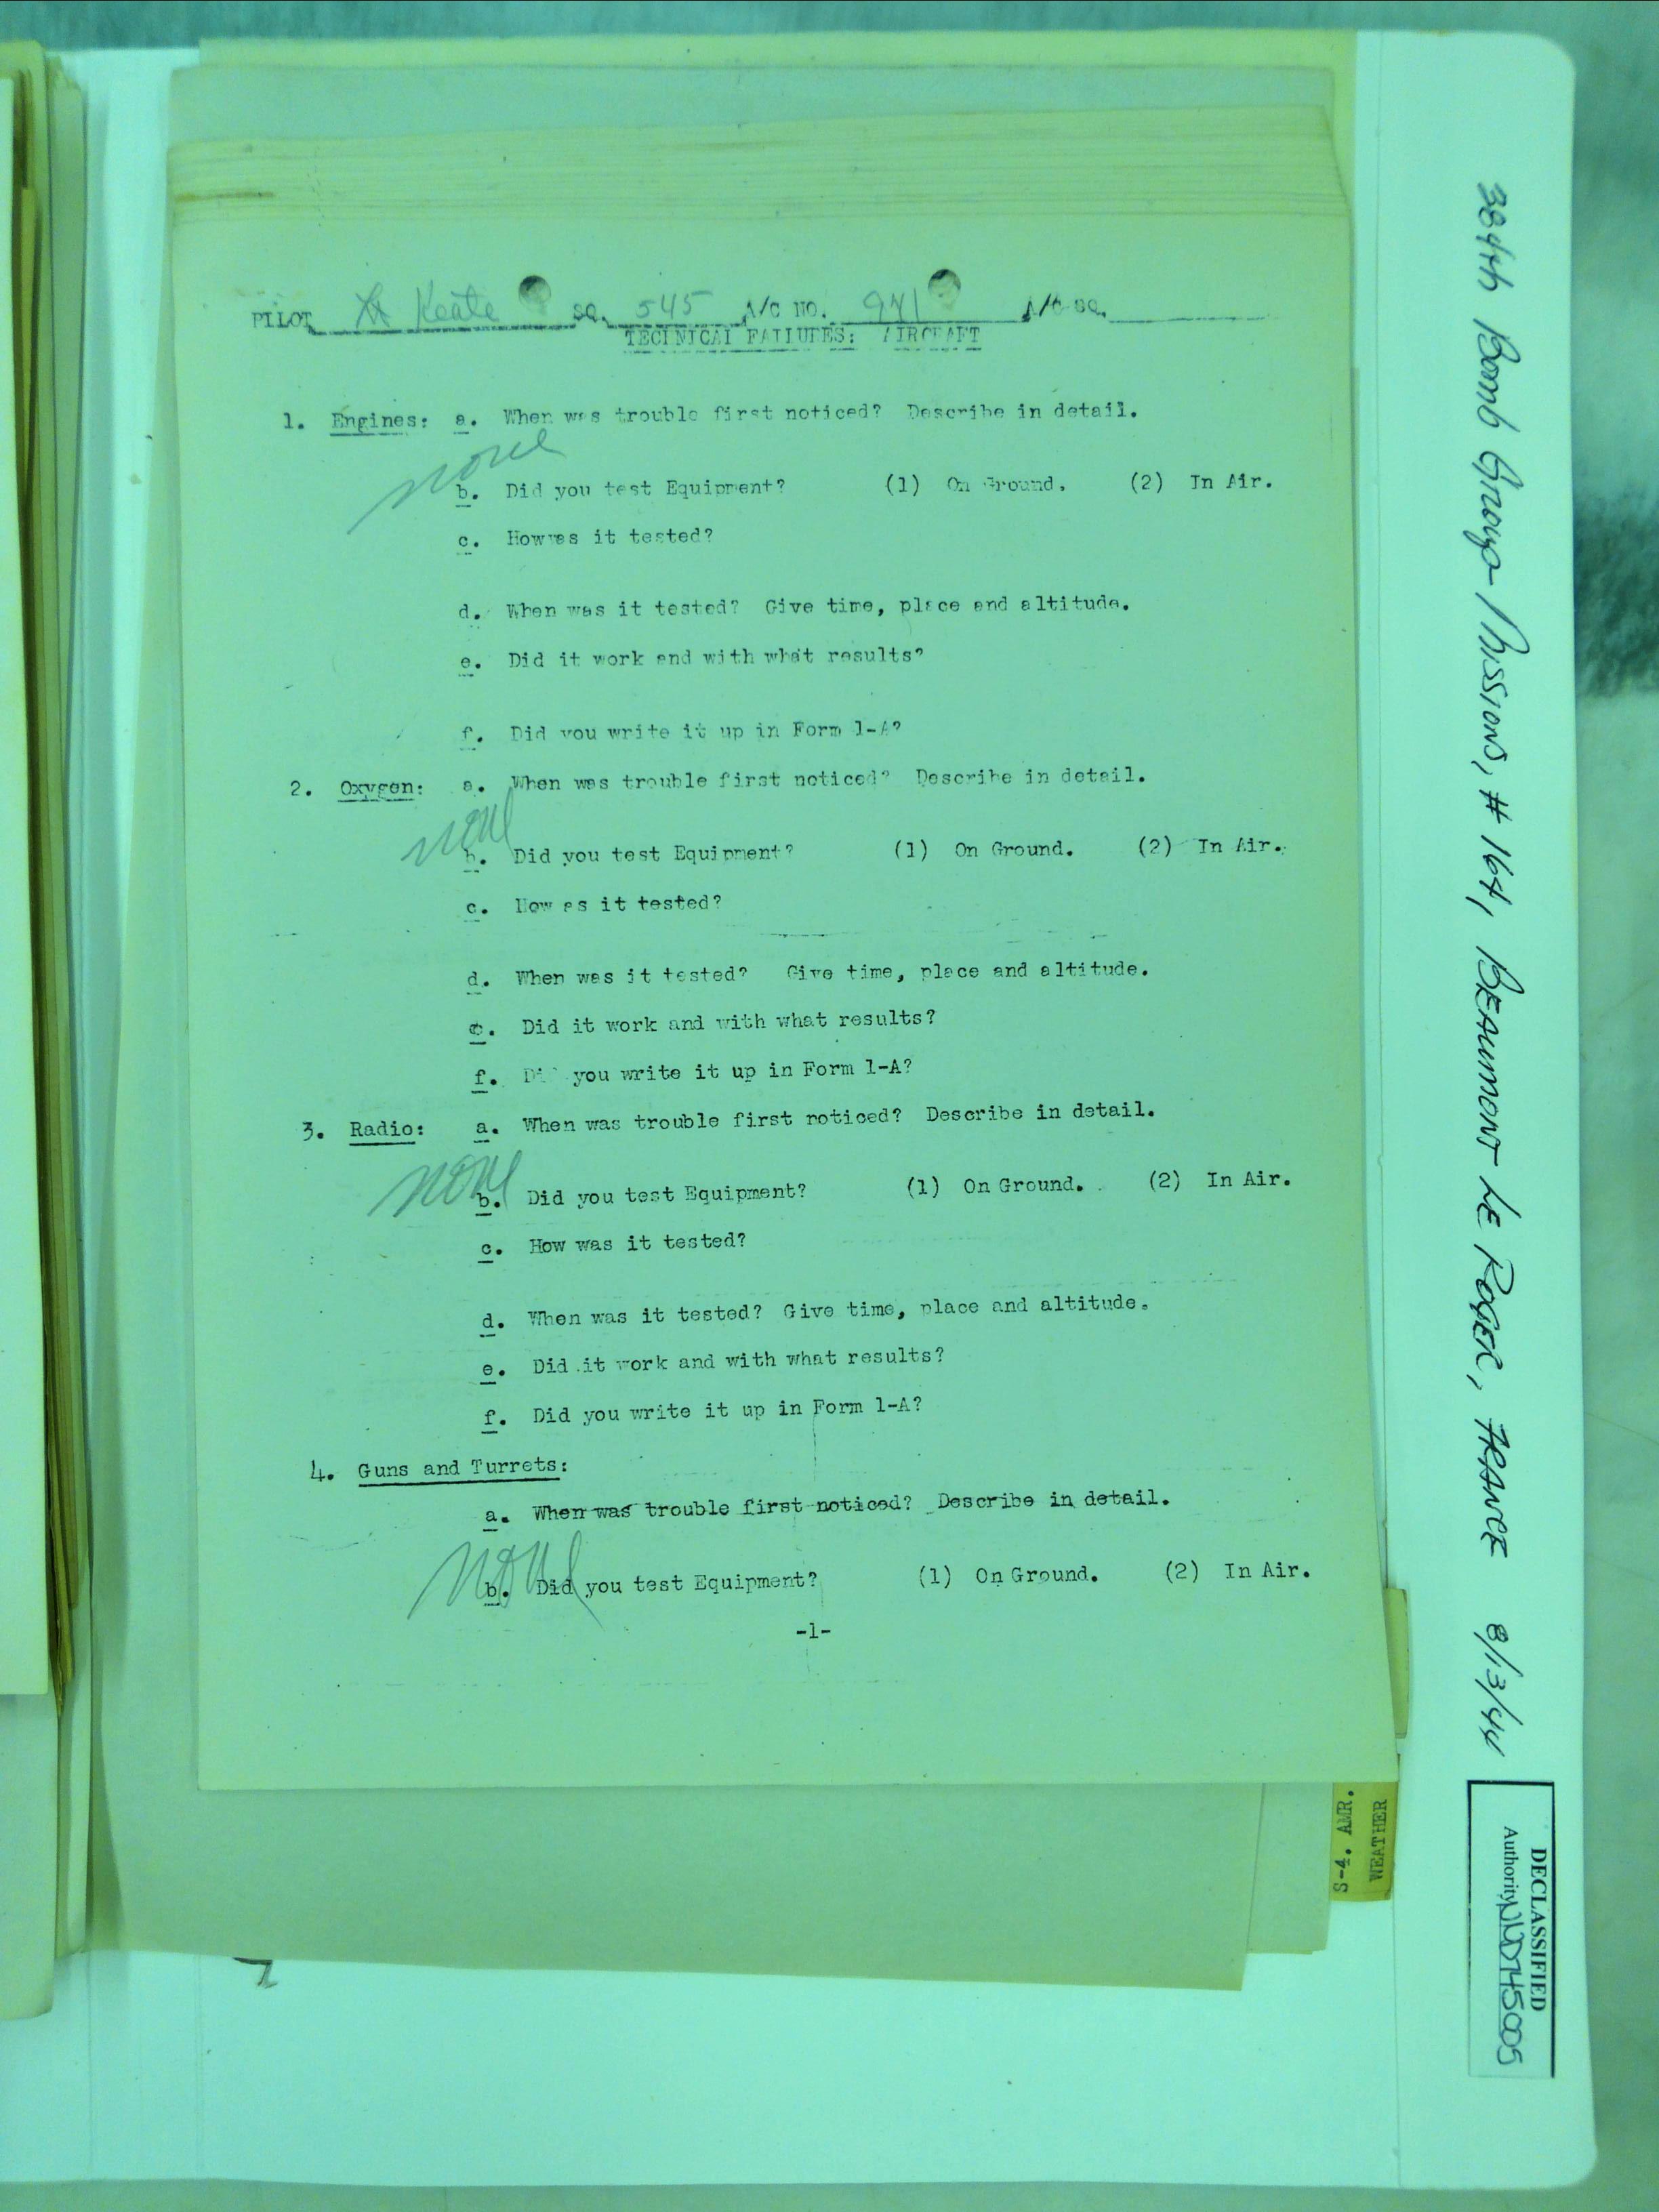 PILOT Lt Keate SQ. 545 A/C NO. 941 A/C SQ.
TECHNICAL FAILURES: AIRCRAFT
1. Engines: a. When was trouble first noticed? Describe in detail.
none
b. Did you test Equipment? (1) On Ground. (2) In Air.
c. How was it tested?
d. When was it tested? Give time, place and altitude.
e. Did it work and with what results?
f. Did you write it up in Form 1-A?
2. Oxygen: a. When was trouble first noticed? Describe in detail.
none
b. Did you test Equipment? (1) On Ground. (2) In Air.
c. How as it tested?
d. When was it tested? Give time, place and altitude.
e. Did it work and with what results?
f. Did you write it up in Form 1-A?
3. Radio: a. When was trouble first noticed? Describe in detail.
none
b. Did you test Equipment? (1) On Ground. (2) In Air.
c. How was it tested?
d. When was it tested? Give time, place and altitude.
e. Did it work and with what results?
f. Did you write it up in Form 1-A?
4. Guns and Turrets:
a. When was trouble first noticed? Describe in detail.
none
b. Did you test Equipment? (1) On Ground. (2) In Air.
-1-
S-4. AMR.
WEATHER
384th Bomb Group Missions, # 164, BEAUMONT LE ROGER, FRANCE 8/13/44
DECLASSIFIED
Authority NND745005